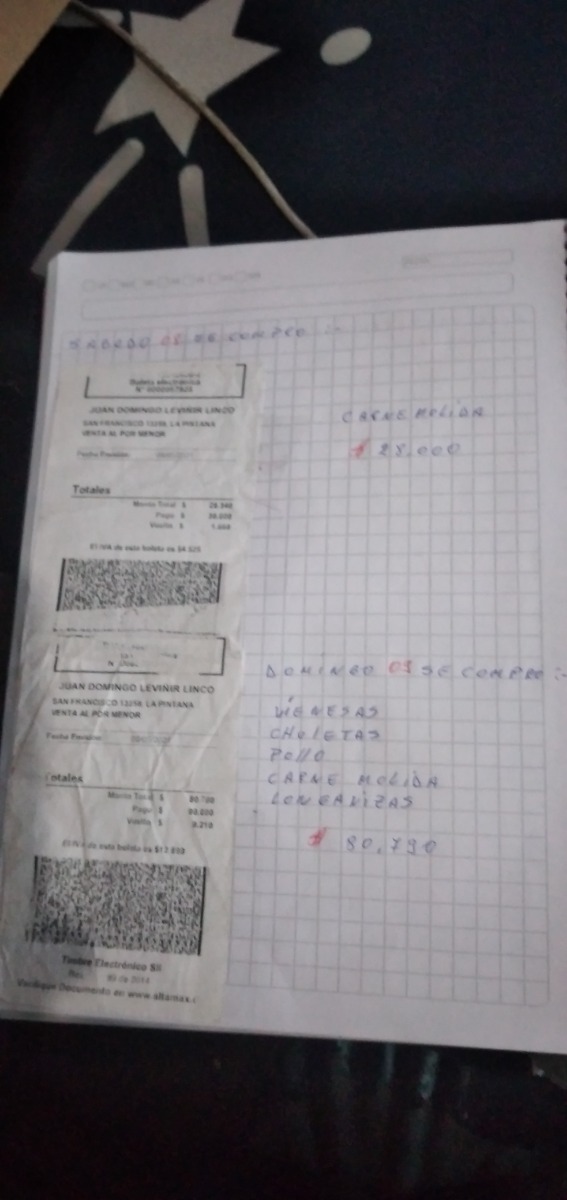 SABADO 08 SE COMPRO :-
Boleta electrónica
JUAN DOMINGO LEVINIR LINCO
SAN FRANCISCO 13258, LA PINTANA
VENTA AL POR MENOR
Fecha Emisión:
Totales
Monto Total $
Pago $ 30.000
Vuelto $
El IVA de esta boleta es
CARNE MOLIDA
$ 28.000
JUAN DOMINGO LEVINIR LINCO
SAN FRANCISCO 13258, LA PINTANA
VENTA AL POR MENOR
Fecha Emisión:
Totales
Monto Total $ 80.790
Pago $
Vuelto $ 9.210
El IVA de esta boleta es
Timbre Electrónico SII
Res. 80 de 2014
Verifique Documento en www.altamax.c
DOMINGO 09 SE COMPRO :-
VIENESAS
CHULETAS
POLLO
CARNE MOLIDA
LONGANIZAS
$ 80,790